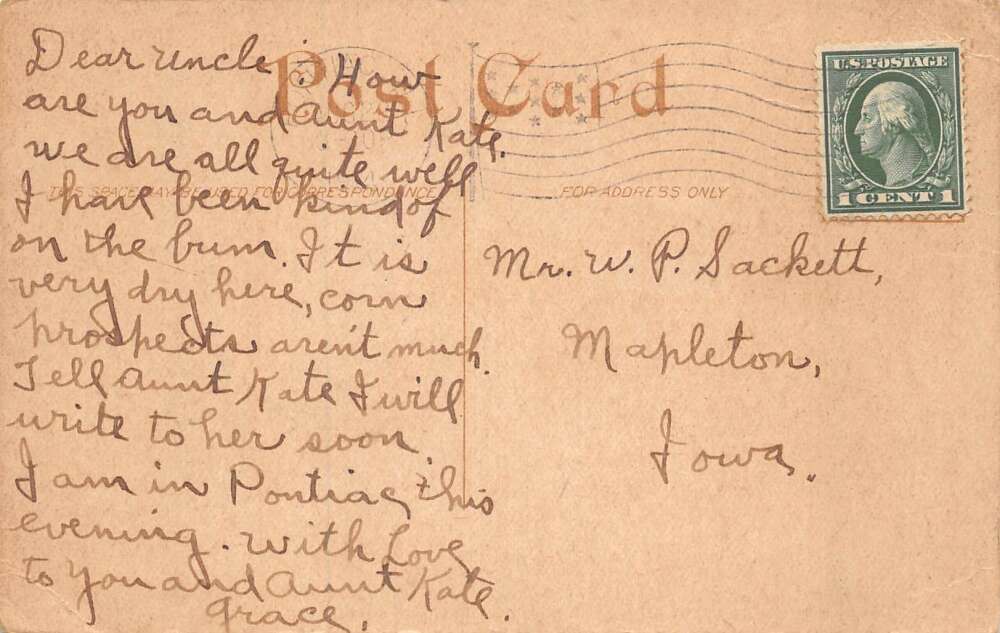 Post Card
THIS SPACE MAY BE USED FOR CORRESPONDENCE
FOR ADDRESS ONLY
U.S. POSTAGE
1 CENT 1
Dear Uncle: How
are you and Aunt Kate.
we are all quite well
I have been kind of
on the bum. It is
very dry here, corn
prospects aren't much.
Tell Aunt Kate I will
write to her soon.
I am in Pontiac this
evening. with Love
to you and Aunt Kate.
Grace.
Mr. W. P. Sackett,
Mapleton,
Iowa.